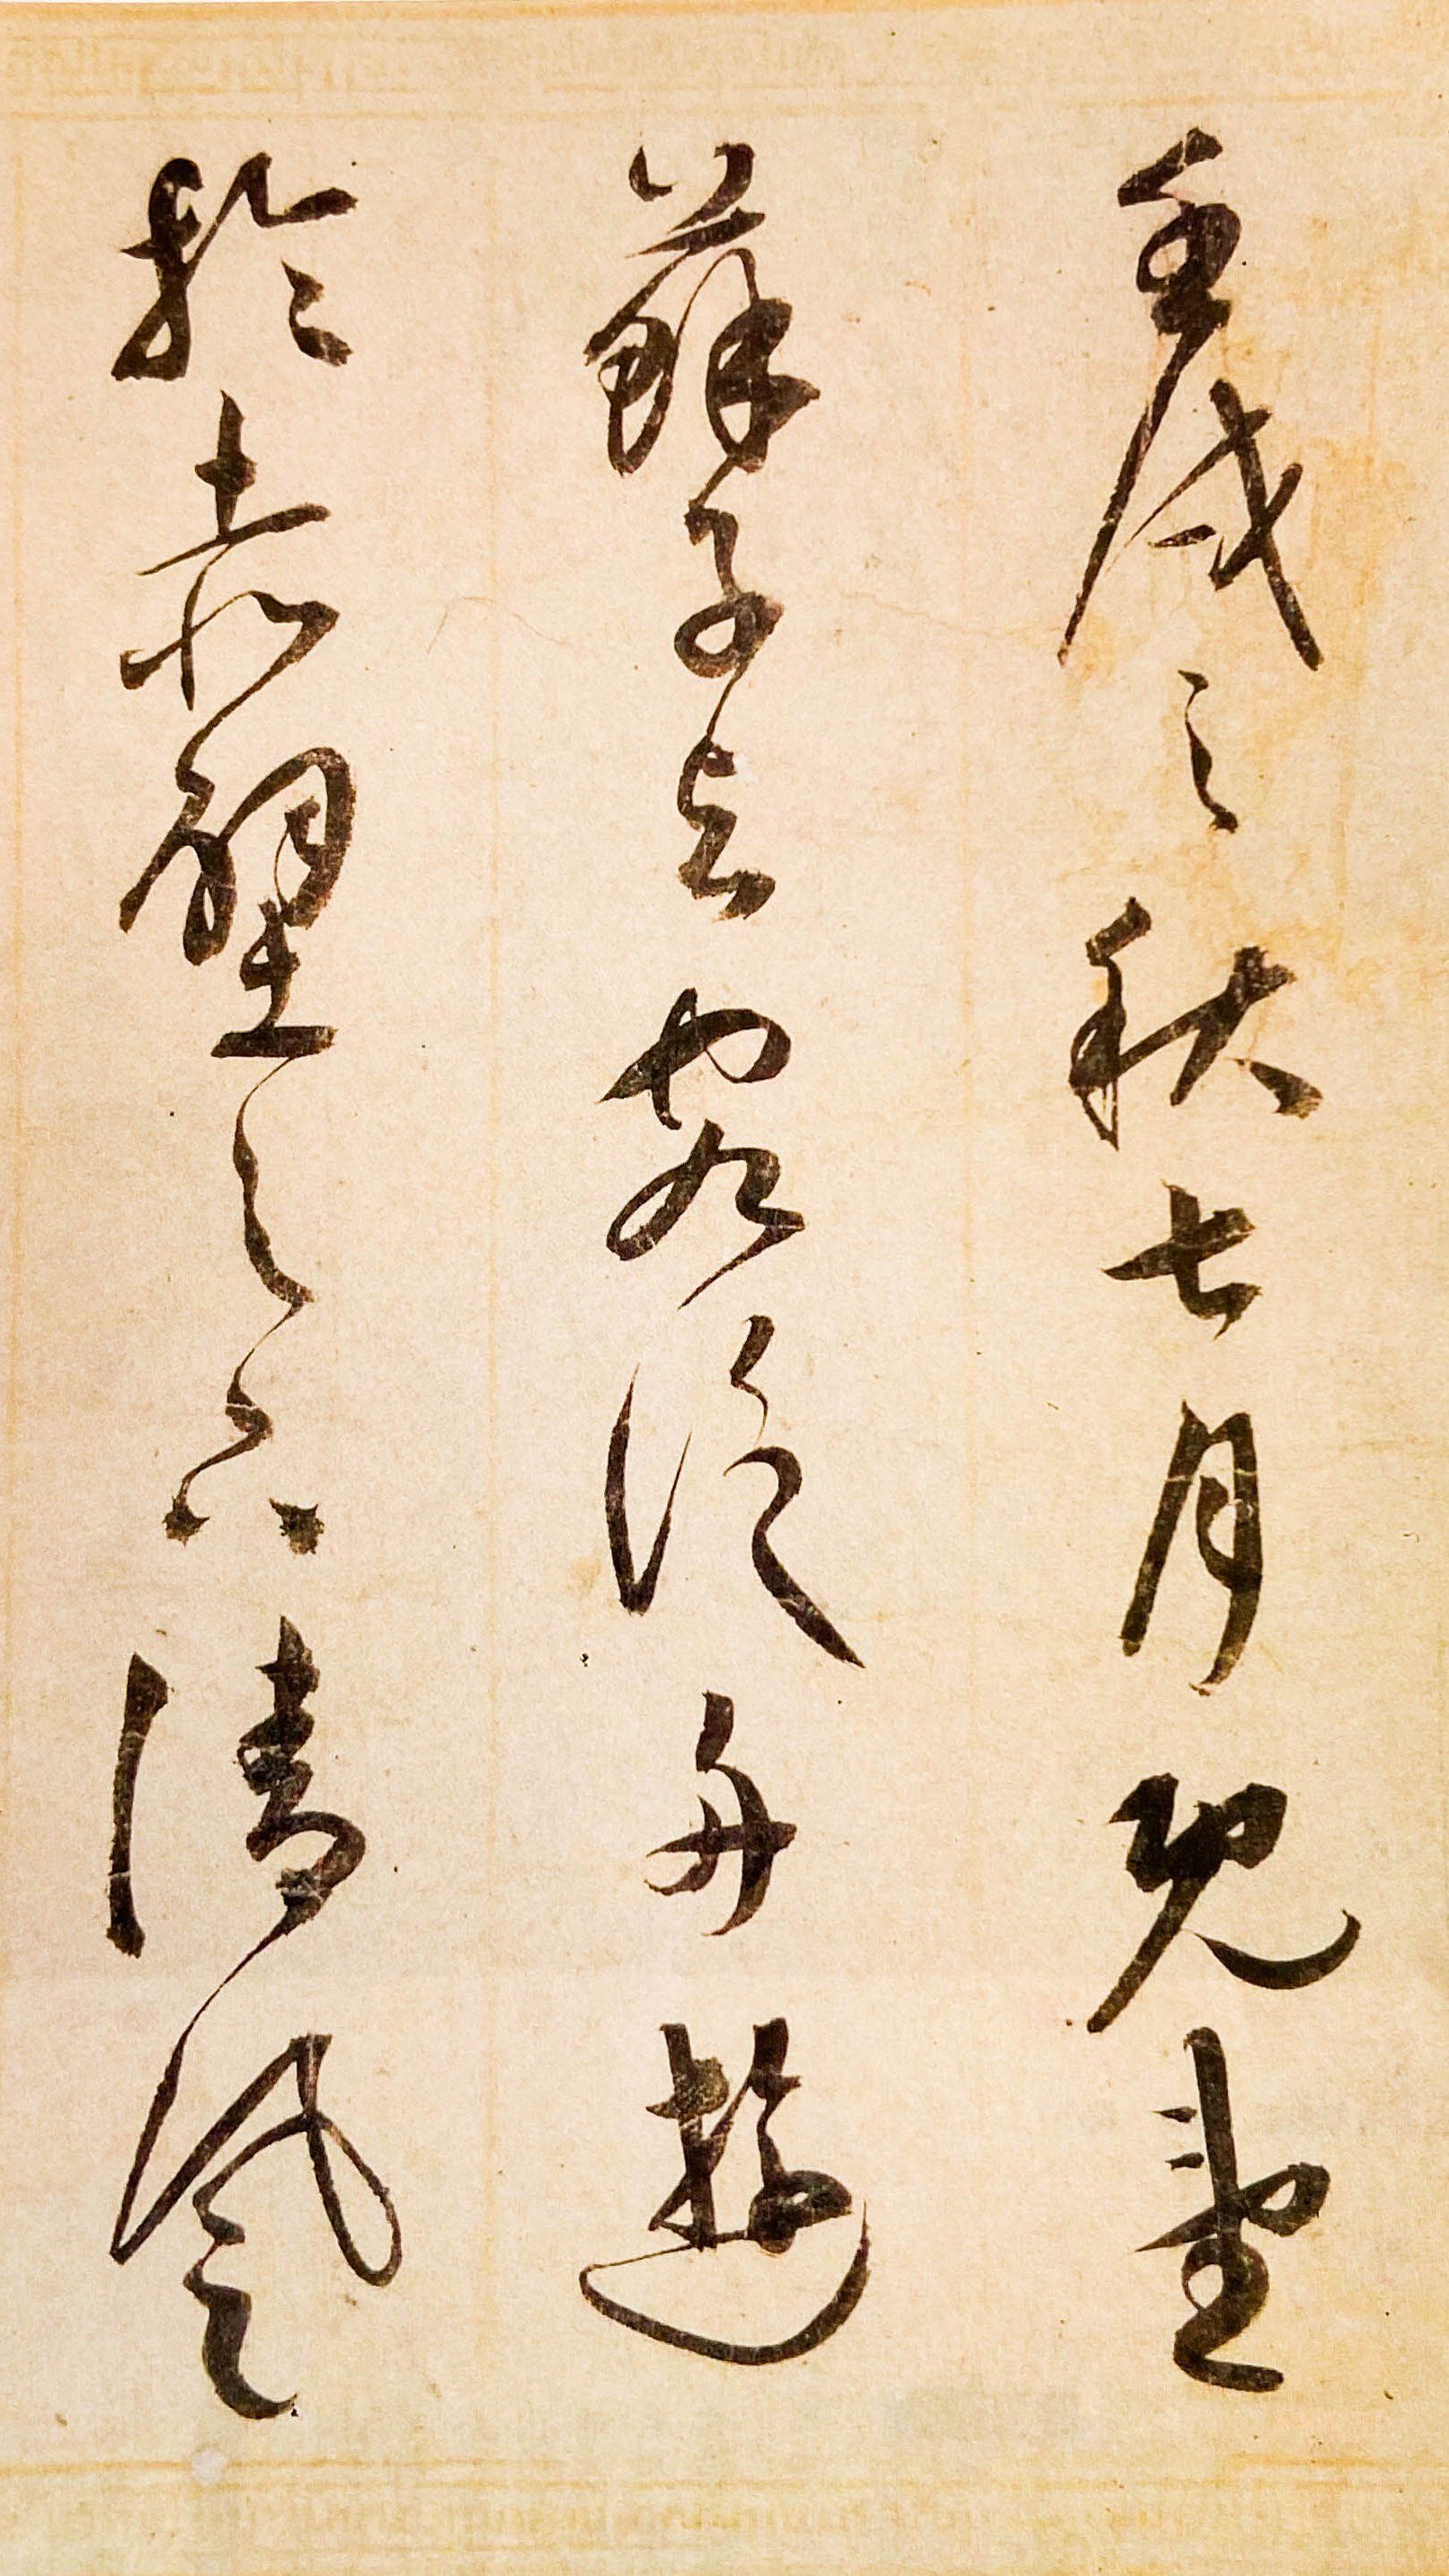 壬戌之秋七月既望
蘇子与客泛舟遊
於赤壁之下清風